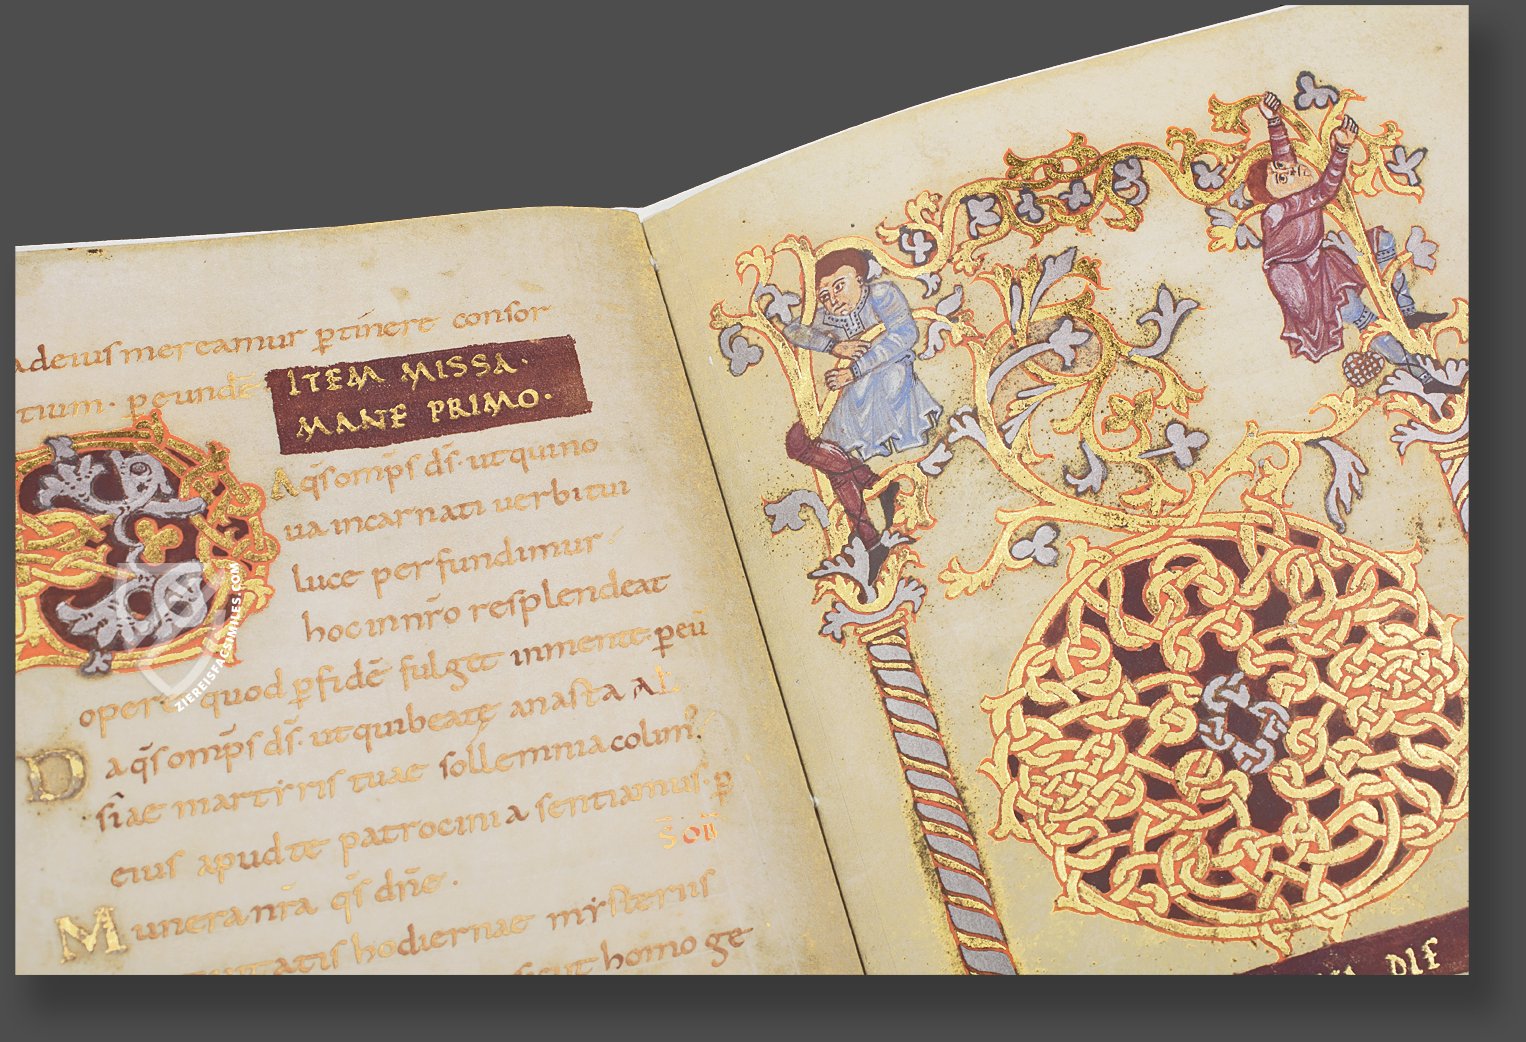 adeius mereamur ptinere consor
tium · peunde
ITEM MISSA ·
MANE PRIMO ·
A q̄s omp̄s d̄s · ut qui no
ua incarnati uerbi tui
luce perfundimur
hoc in nr̄o resplendeat
opere quod p̄ fidē fulget in mente · p̄ eū
D a q̄s omp̄s d̄s · ut qui beatę anastasiae
martyris tuae sollemnia colim᷒ ·
eius apud te patrocinia sentiamus · p̄
M unera nr̄a q̄s dn̄e ·
tiuitatis hodiernae mysteriis
sicut homo ge
ZIEREISFACSIMILES.COM